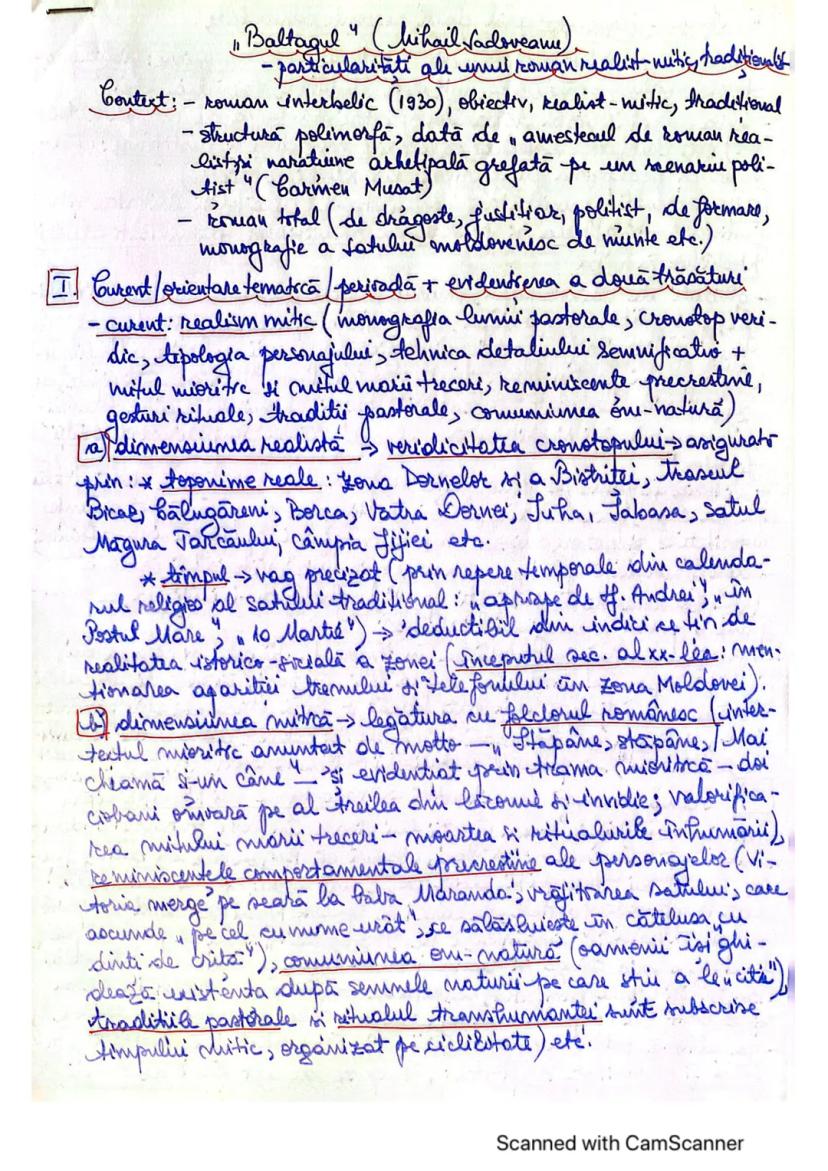 „Baltagul" (Mihail Sadoveanu)
- particularități ale unui roman realist-mitic, tradiționalist
Context: - roman interbelic (1930), obiectiv, realist-mitic, tradițional
- structură polimorfă, dată de „amestecul de roman rea-
list și narațiune arhetipală grefată pe un scenariu poli-
tist" (Carmen Mușat)
- roman total (de dragoste, justițiar, polițist, de formare,
monografie a satului moldovenesc de munte etc.)
I. Curent/orientare tematică/perioadă + evidențierea a două trăsături
- curent: realism mitic (monografia lumii pastorale, cronotop veri-
dic, tipologia personajului, tehnica detaliului semnificativ +
mitul mioritic și mitul marii treceri, reminiscențe precreștine,
gesturi rituale, tradiții pastorale, comuniunea om-natură)
a) dimensiunea realistă → veridicitatea cronotopului → asigurată
prin: * toponime reale: zona Dornelor și a Bistriței, traseul
Bicaz, Călugăreni, Borca, Vatra Dornei, Suha, Sabasa, satul
Măgura Tarcăului, câmpia Jijiei etc.
* timpul → vag precizat (prin repere temporale din calenda-
rul religios al satului tradițional: „aproape de Sf. Andrei", „în
Postul Mare", „10 Martie") → deductibil din indici ce țin de
realitatea istorico-socială a zonei (începutul sec. al XX-lea: men-
ționarea apariției trenului și telefonului în zona Moldovei).
b) dimensiunea mitică → legătura cu folclorul românesc (inter-
textul mioritic anunțat de motto — „Stăpâne, stăpâne,/ Mai
cheamă ș-un câne" — și evidențiat prin trama mioritică - doi
ciobani omoară pe al treilea din lăcomie și invidie; valorifica-
rea mitului marii treceri - moartea și ritualurile înhumării),
reminiscențele comportamentale precreștine ale personajelor (Vi-
toria merge pe seară la baba Maranda, vrăjitoarea satului, care
ascunde „pe cel cu nume urât", ce sălășluiește în cățelușa „cu
dinți de criță"), comuniunea om-natură (oamenii își ghi-
dează existența după semnele naturii pe care știu a le „citi"),
tradițiile pastorale și ritualul transhumanței sunt subscrise
timpului mitic, organizat pe ciclicitate) etc.
Scanned with CamScanner